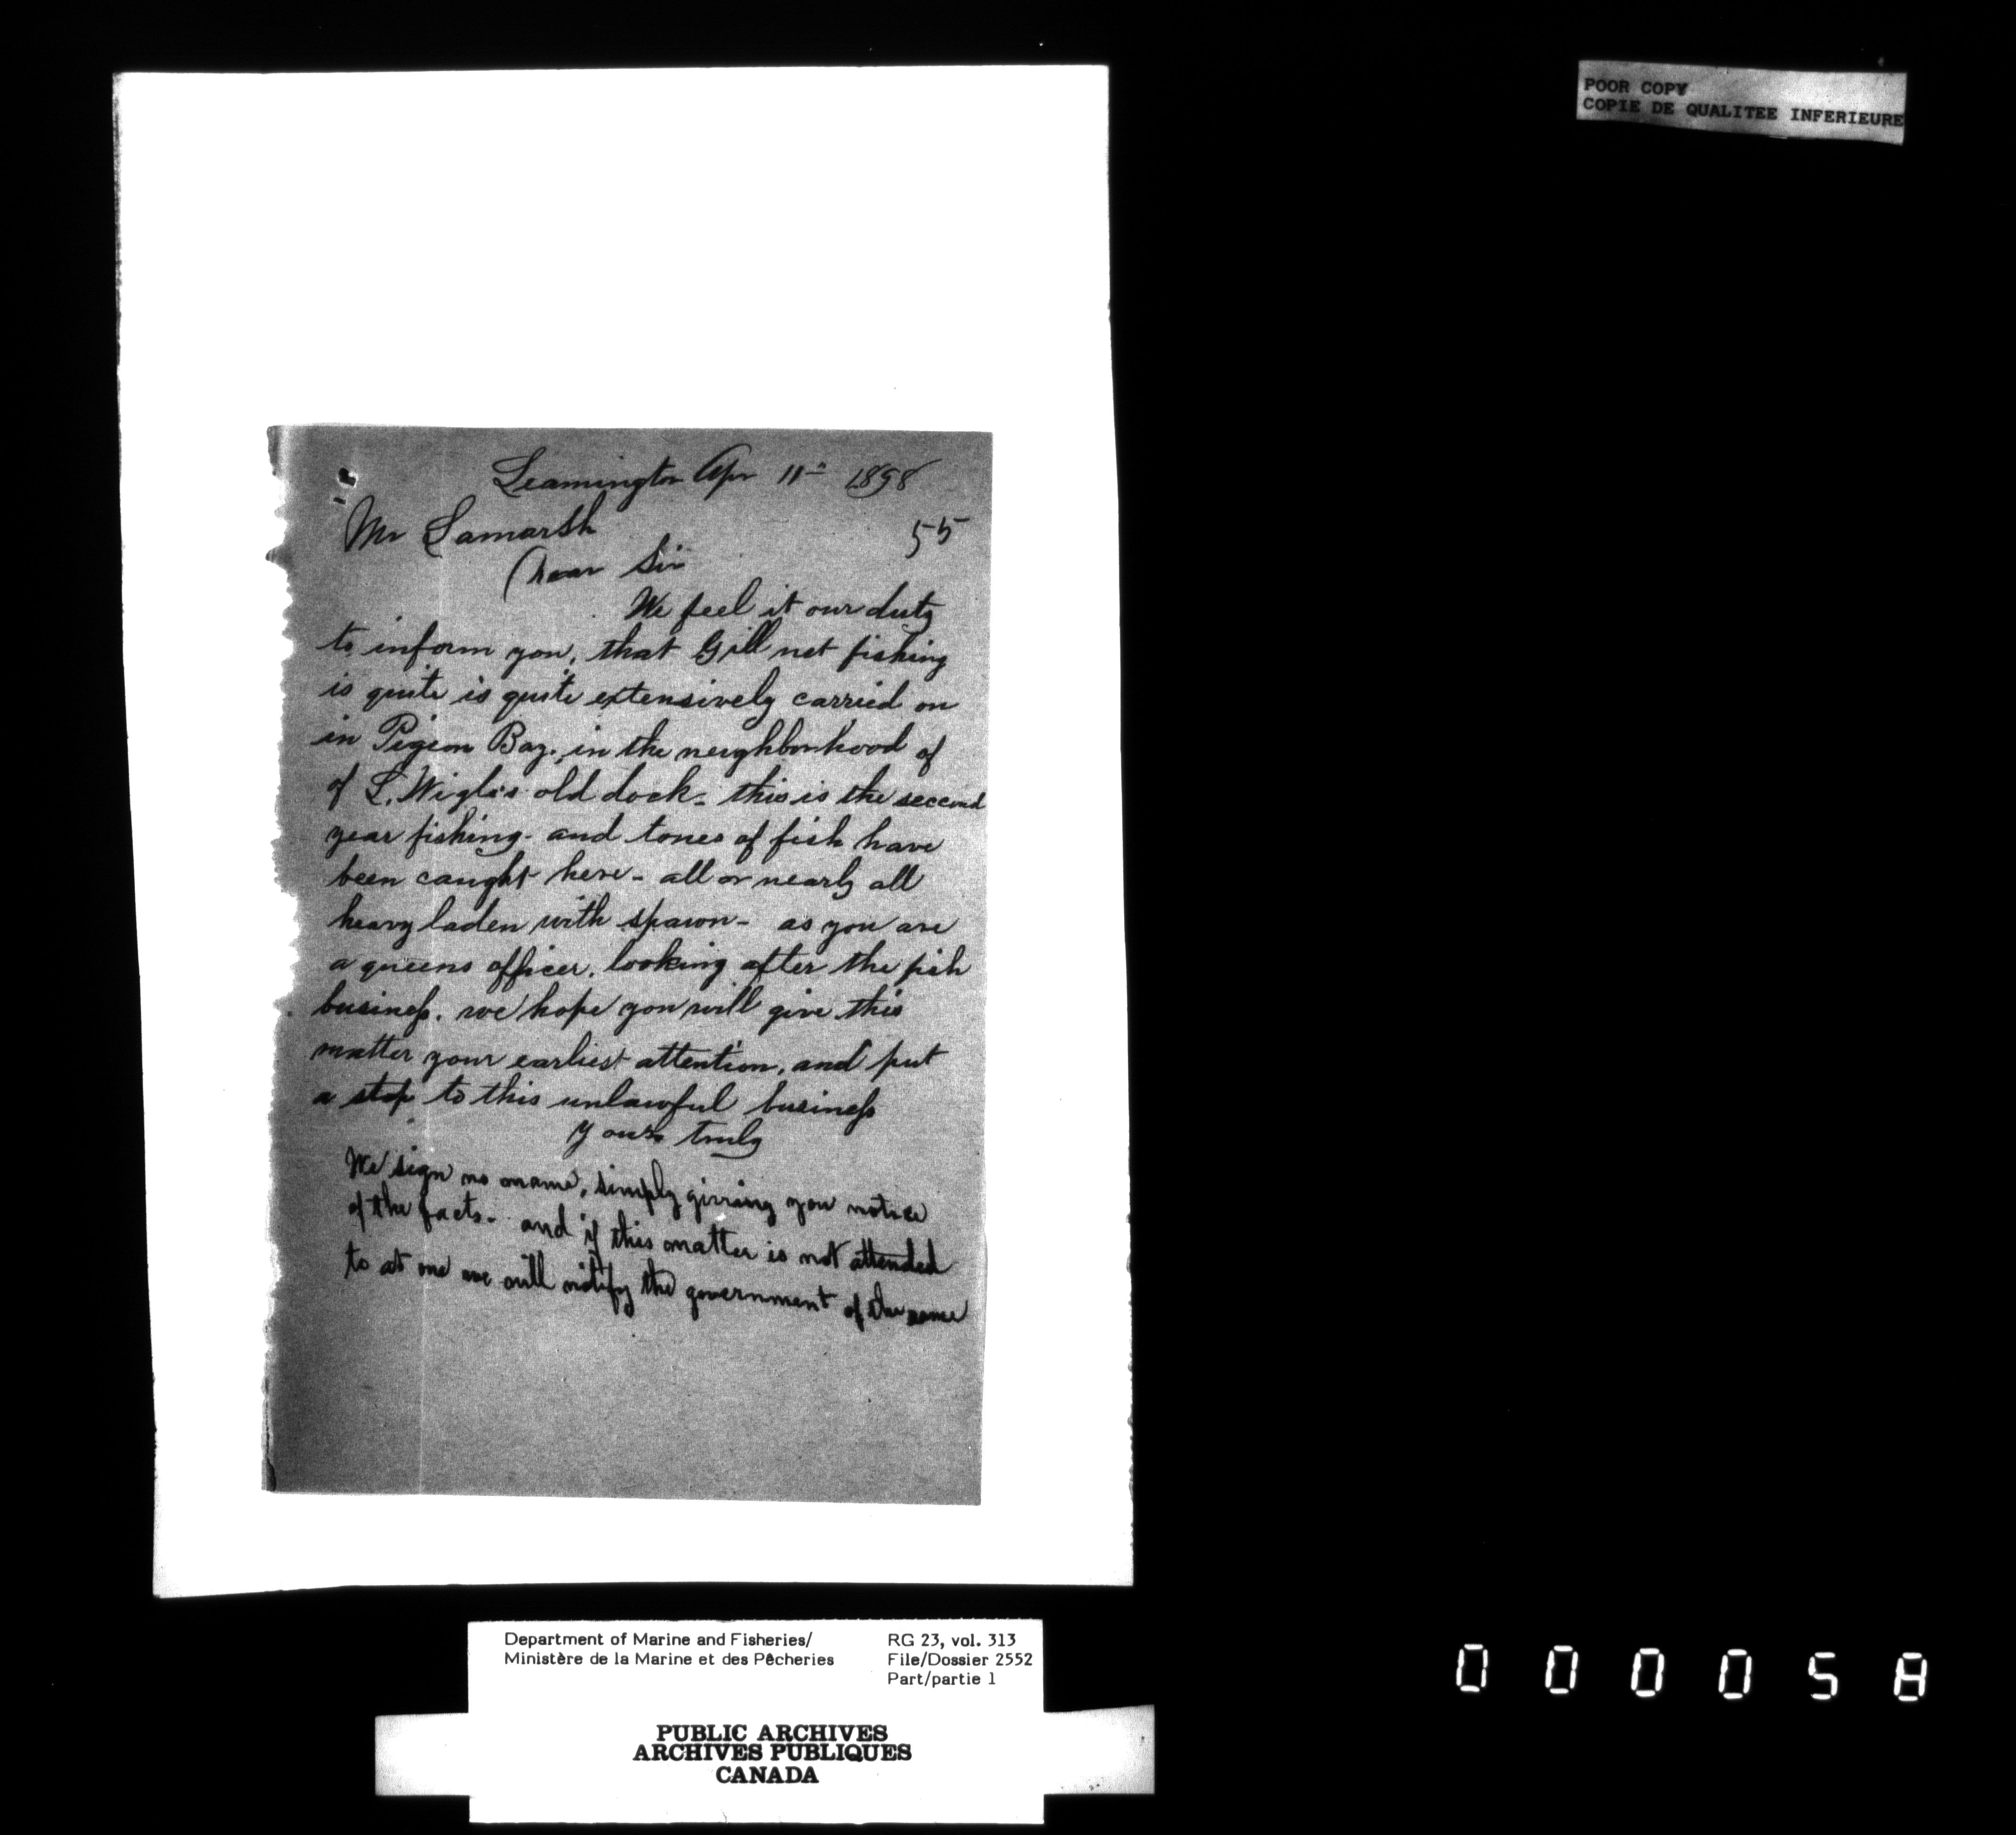 POOR COPY
COPIE DE QUALITEE INFERIEURE
Leamington Apr 11th 1898
55
Mr Lamarsh
Dear Sir
We feel it our duty
to inform you, that Gill net fishing
is quite is quite extensively carried on
in Pigeon Bay. in the neighborhood of
of L. Wigle's old dock - this is the second
year fishing - and tones of fish have
been caught here - all or nearly all
heavy laden with spawn - as you are
a queens officer. looking after the fish
business. we hope you will give this
matter your earliest attention, and put
a stop to this unlawful business
Yours truly
We sign no name, simply giving you notice
of the facts - and if this matter is not attended
to at one we will notify the government of the same
Department of Marine and Fisheries/
Ministère de la Marine et des Pêcheries
RG 23, vol. 313
File/Dossier 2552
Part/partie 1
PUBLIC ARCHIVES
ARCHIVES PUBLIQUES
CANADA
000058